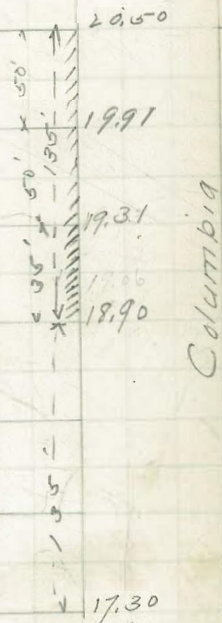 20.50
50'
135'
19.91
50'
19.31
35'
19.06
18.90
Columbia
135'
17.30